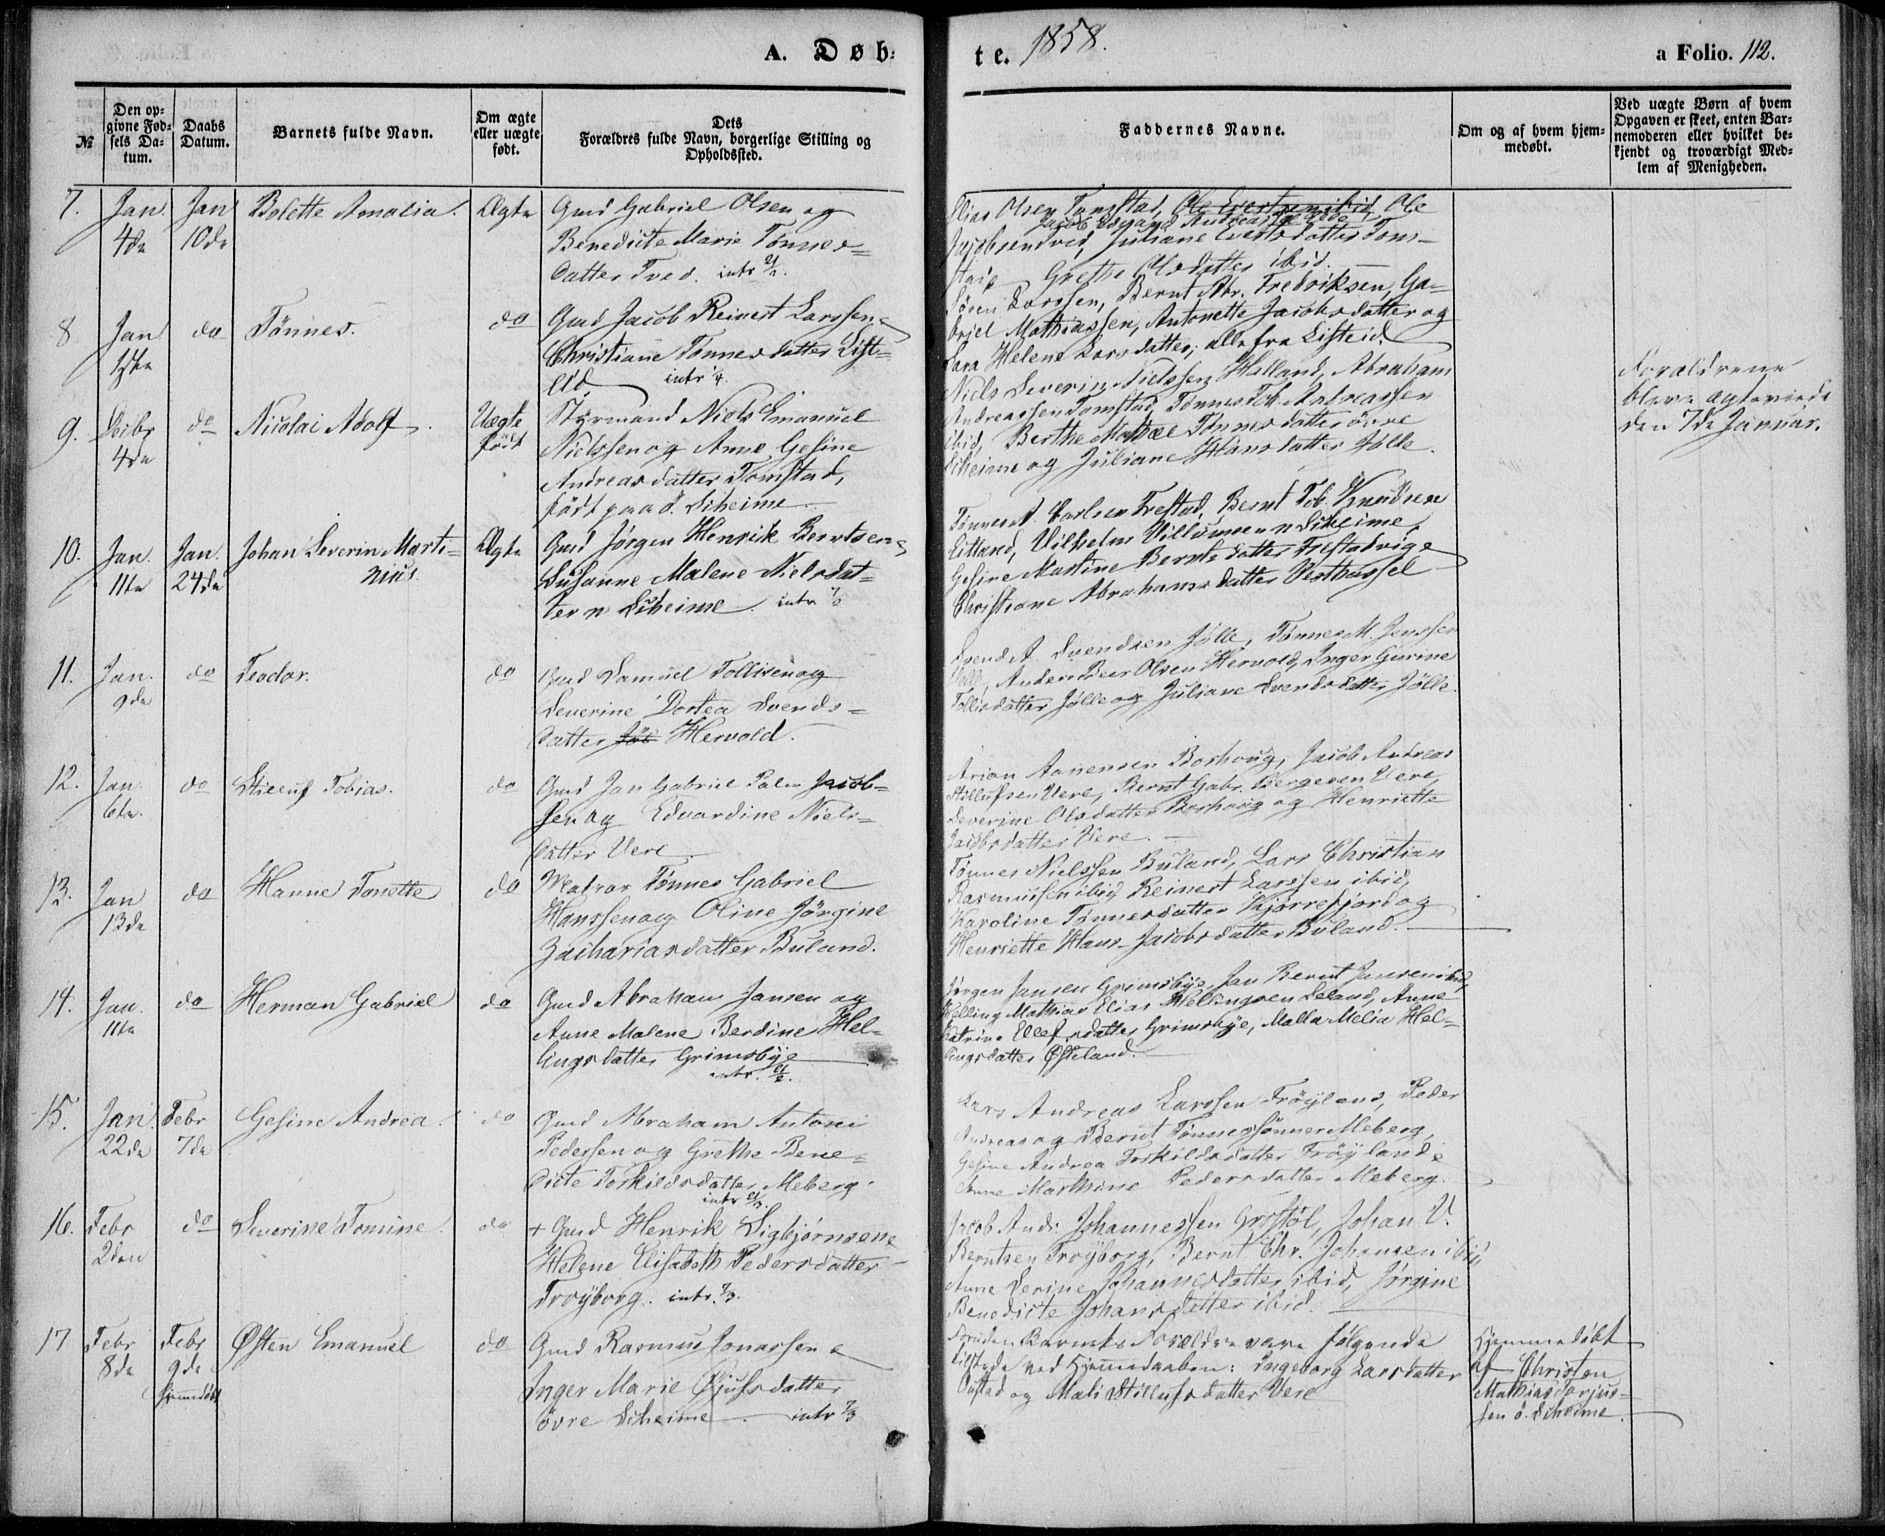 A. Døb-
te. 1858.
a Folio. 112.
№
Den opgivne Fødsels Datum.
Daabs Datum.
Barnets fulde Navn.
Om ægte eller uægte født.
Dets Forældres fulde Navn, borgerlige Stilling og Opholdssted.
Faddernes Navne.
Om og af hvem hjemmedøbt.
Ved uægte Børn af hvem Opgaven er skeet, enten Barnemoderen eller hvilket bekjendt og troværdigt Medlem af Menigheden.
7. Jan. 4de Jan 10de Bolette Amalia. Ægte
Gmd Gabriel Olsen og
Benedicte Marie Tønnes=
datter Tved. intr 21/2.
Elias Olsen Tomstad, Ole Evertsen ibid, Ole
Jacobsen Tved, Juliane Evertsdatter Tom-
stad Grethe Olsdatter ibid.
8 Jan 1ste do Tønnes. do
Gmd Jacob Reinert Larssen
Christiane Tønnesdatter List=
eid intr
Søren Larssen, Bernt Abr. Fredriksen, Ga-
briel Mathiassen, Antonette Jacobsdatter og
Lara Helene Larsdatter; alle fra Listeid.
9. Dcbr 4de do Nicolai Adolf. Uægte født
Styrmand Niels Emanuel
Nielssen og Anne Gesine
Andreasdatter Tomstad,
født paa ø. Skeime
Niels Severin Nielssen Helland, Abraham
Andreassen Tomstad, Tønnes Tob. Andreassen
ibid, Berthe Mathæe Tønnesdatter øvre
Skeime og Juliane Hansdatter Jølle.
Forældrene
bleve ægteviede
den 7de Januar.
10. Jan. 11te Jan. 24de Johan Severin Marti=
nius Ægte
Gmd Jørgen Henrik Berntsen
Susanne Malene Nielsdat=
ter n. Skeime. intr 7/3
Tønnes A. Carlsen Frestad, Bernt Tob. Knudsen
Eitland, Vilhelm Villumsen n Skeime,
Gesine Martine Berntsdatter Frestadvige
Christiane Abrahamsdatter Vesthassel
11. Jan. 9de do Teodor. do
Gmd Samuel Tollisen og
Severine Dortea Svends=
datter Jøl Hervold.
Svend A Svendsen Jølle, Tønnes M. Jenssen
Anders Beer Olsen Hervold, Inger Gurine
Tollisdatter Jølle og Juliane Svendsdatter Jølle.
12. Jan. 6te. do Stilluf Tobias. do
Gmd Jan Gabriel Palm Jacob=
sen og Edvardine Niels=
datter Vere
Arian Aanensen Borhoug, Jacob Andreas
Stillufsen Vere, Bernt Gabr. Bergesen Vere,
Severine Olsdatter Borhoug og Henriette
Jacobsdatter Vere.
13. Jan 13de do Hanne Tonette do
Matros Tønnes Gabriel
Hanssen og Oline Jørgine
Zachariasdatter Buland.
Tønnes Nielssen Buland, Lars Christian
Rasmussen ibid, Reinert Larssen ibid,
Karoline Tønnesdatter Kjørrefjord og
Henriette Hans-Jacobsdatter Buland.
14. Jan. 11te do Herman Gabriel do
Gmd Abraham Jansen og
Anne Malene Berdine Hel-
lingsdatter Grimsbye
intr. 21/2.
Jørgen Jansen Grimsbye, Jan Bernt Jansen ibid,
Helling Mathias Elias Hellingsen Leland, Anne
Katrine Ellefsdatter Grimsbye, Malla Melia Hel-
lingsdatter Østeland.
15. Jan. 22de Febr 7de Gesine Andrea. do
Gmd Abraham Antoni
Pedersen og Grethe Bene=
dicte Torkildsdatter Meberg.
Lars Andreas Larssen Frøyland, Peder
Andreas og Bernt Tønnessønner Meberg,
Gesine Andrea Torkildsdatter Frøyland &
Anne Marthine Pedersdatter Meberg.
16. Febr 2den do Severine Tomine. do
+ Gmd Henrik Sigbjørnsen &
Helene Elisabeth Pedersdatter
Frøyborg. intr. 7/3.
Jacob Andr. Johannessen Grostøl, Johan V.
Berntsen Frøyborg, Bernt Chr. Johansen ibid
Anne Serine Johannesdatter ibid, Jørgine
Benedicte Johansdatter ibid.
17 Febr 8de Febr 9de hjemdøbt Østen Emanuel do
Gmd Rasmus Jonassen &
Inger Marie Gjulfsdatter
øvre Skeime intr 7/3
Foruden Barnets Forældre vare følgende
tilstede ved Hjemmedaaben: Ingeborg Larsdatter
og Mali Stillufsdatter Vere
Hjemmedøbt
af Christen
Mathias Torjus=
sen ø. Skeime.